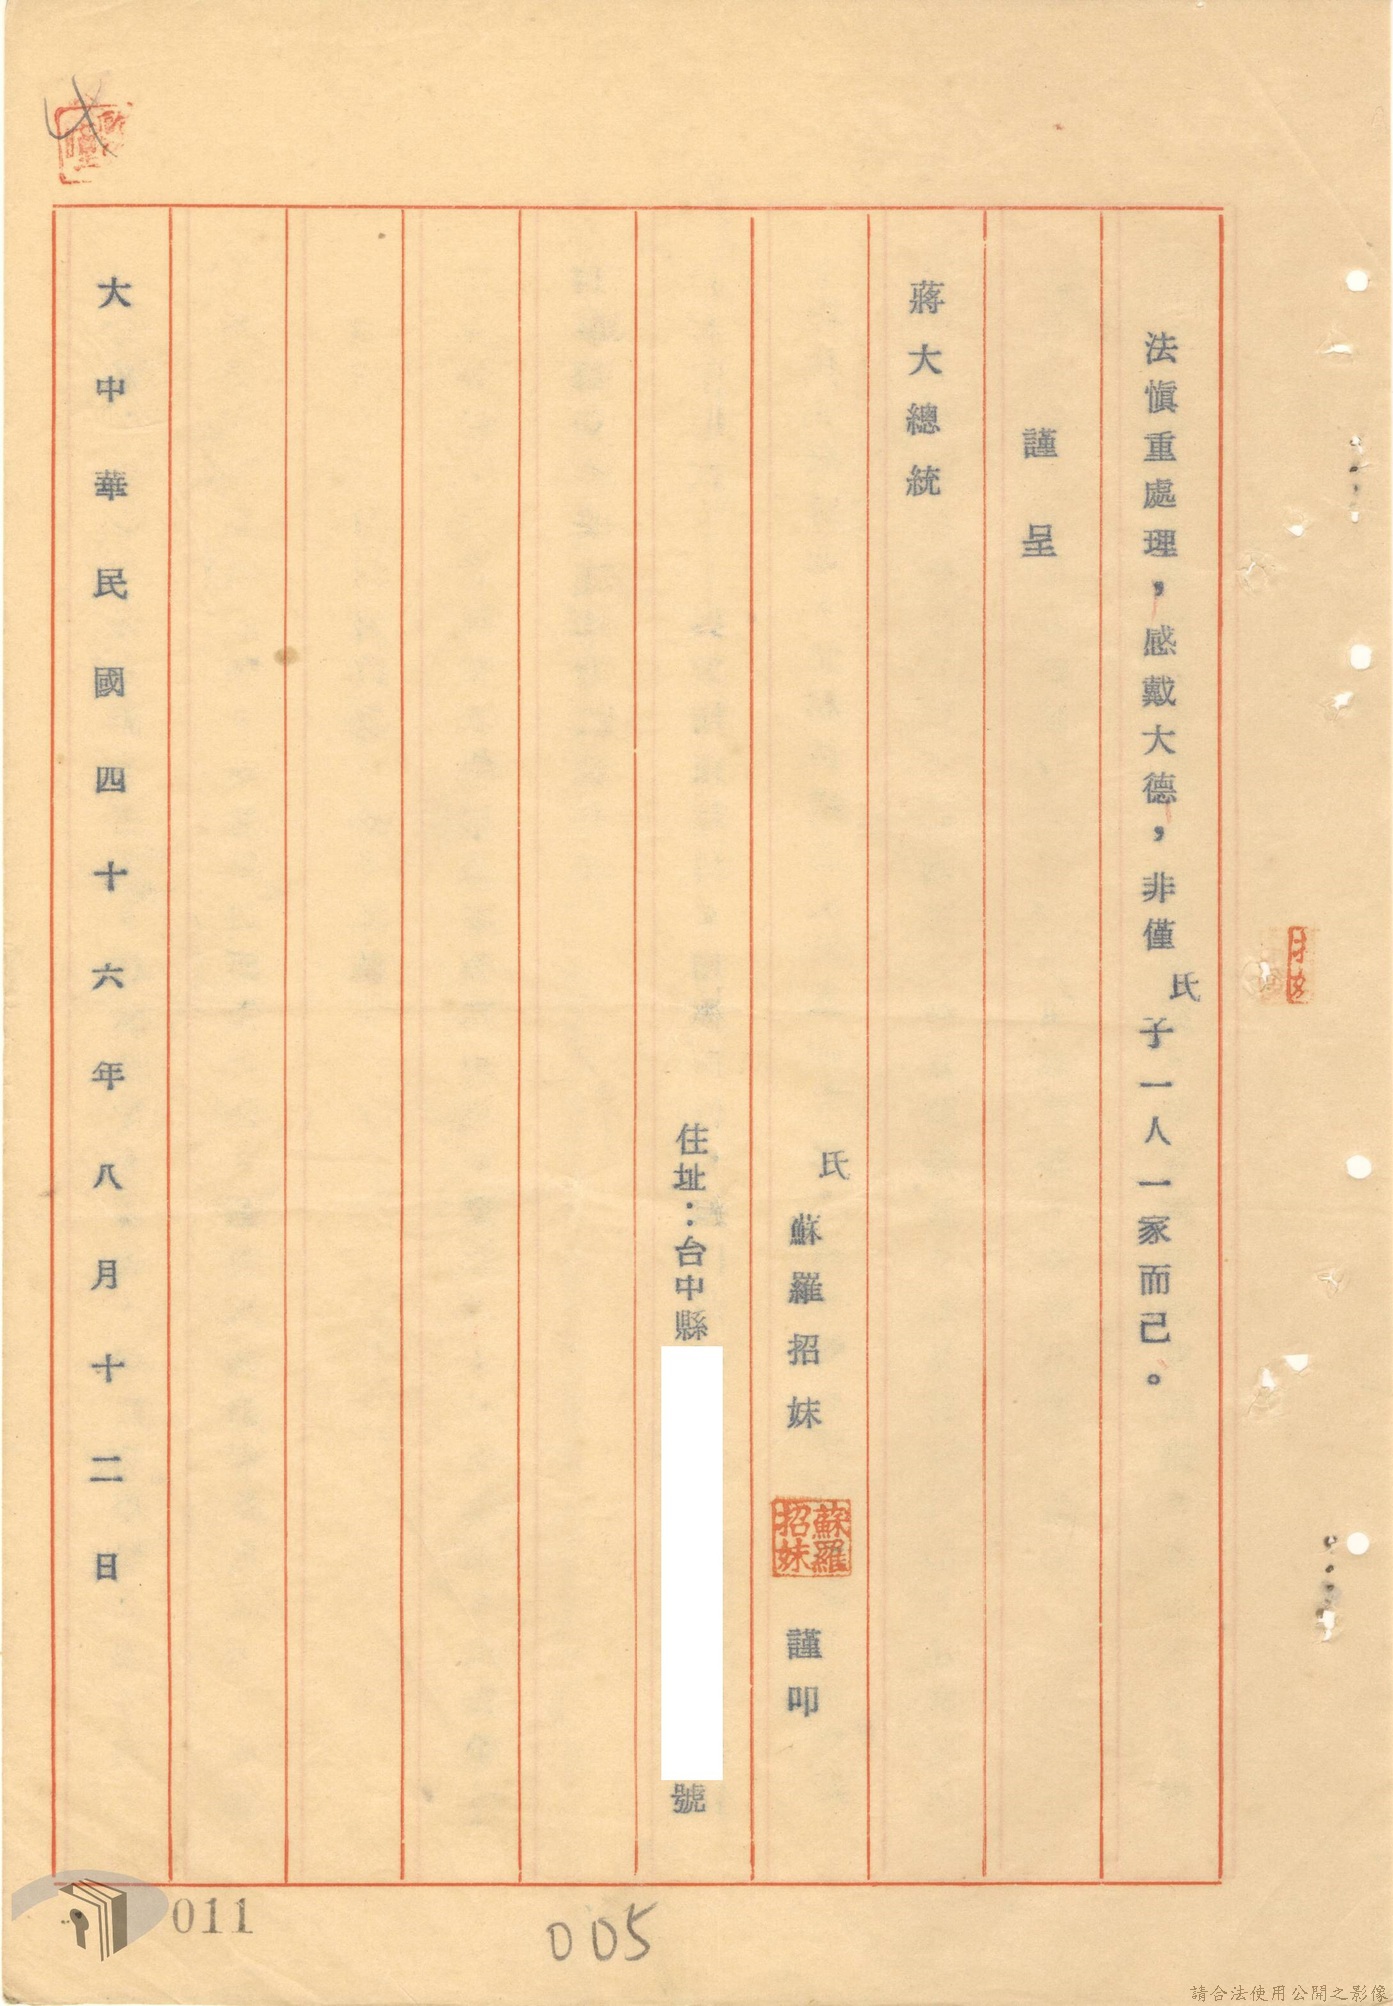 法慎重處理，感戴大德，非僅氏子一人一家而己。
謹呈
蔣大總統
氏蘇羅招妹
蘇羅招妹
謹叩
住址：台中縣
號
大中華民國四十六年八月十二日
011
005
請合法使用公開之影像